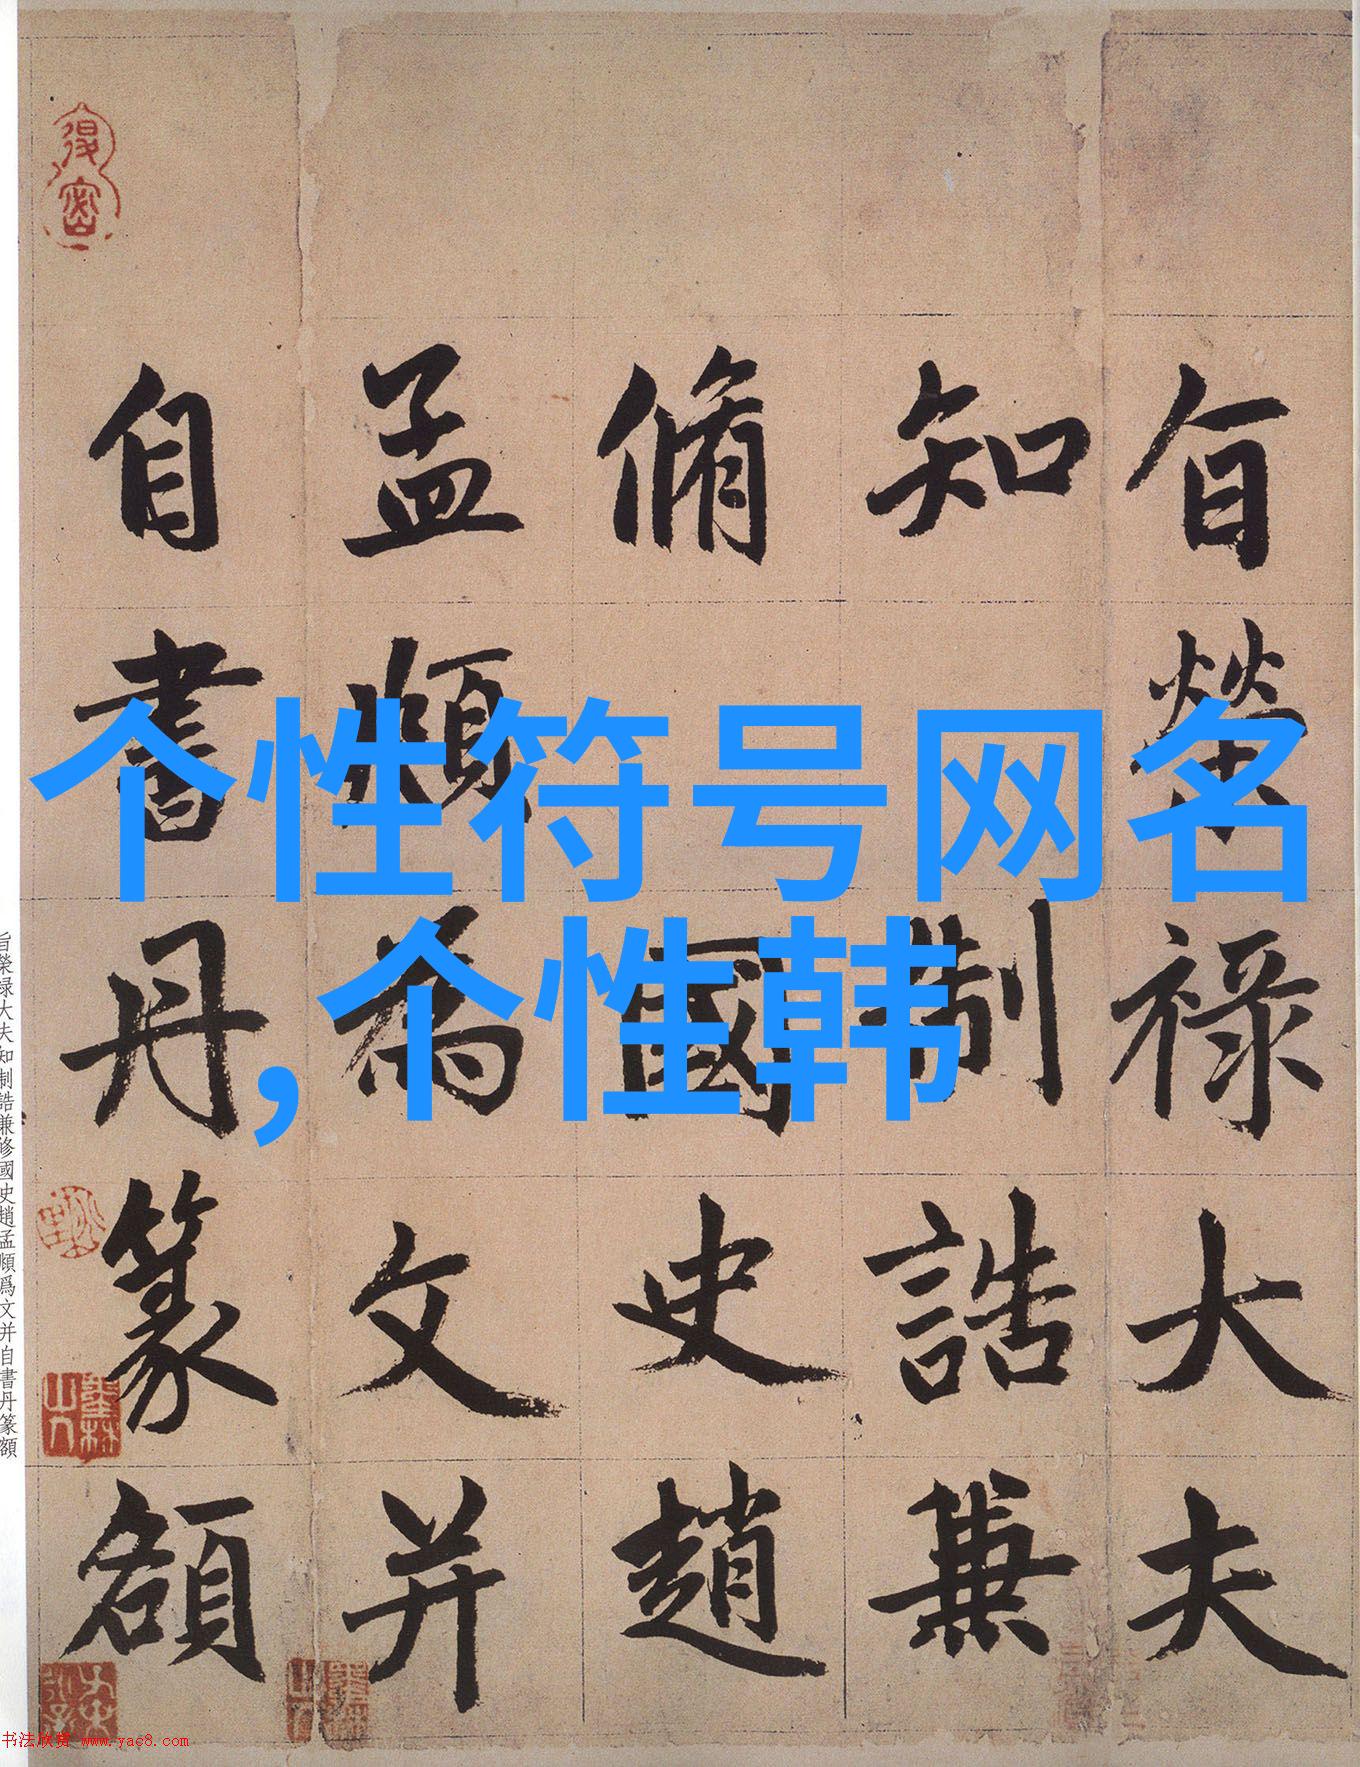 旨榮祿大夫
知制誥兼
脩國史趙
孟頫為文并
自書丹篆額
个性符号网名
,个性韩
旨榮禄大夫知制誥兼修國史趙孟頫爲文并自書丹篆額
墨林山人
书法欣赏 www.yac8.com